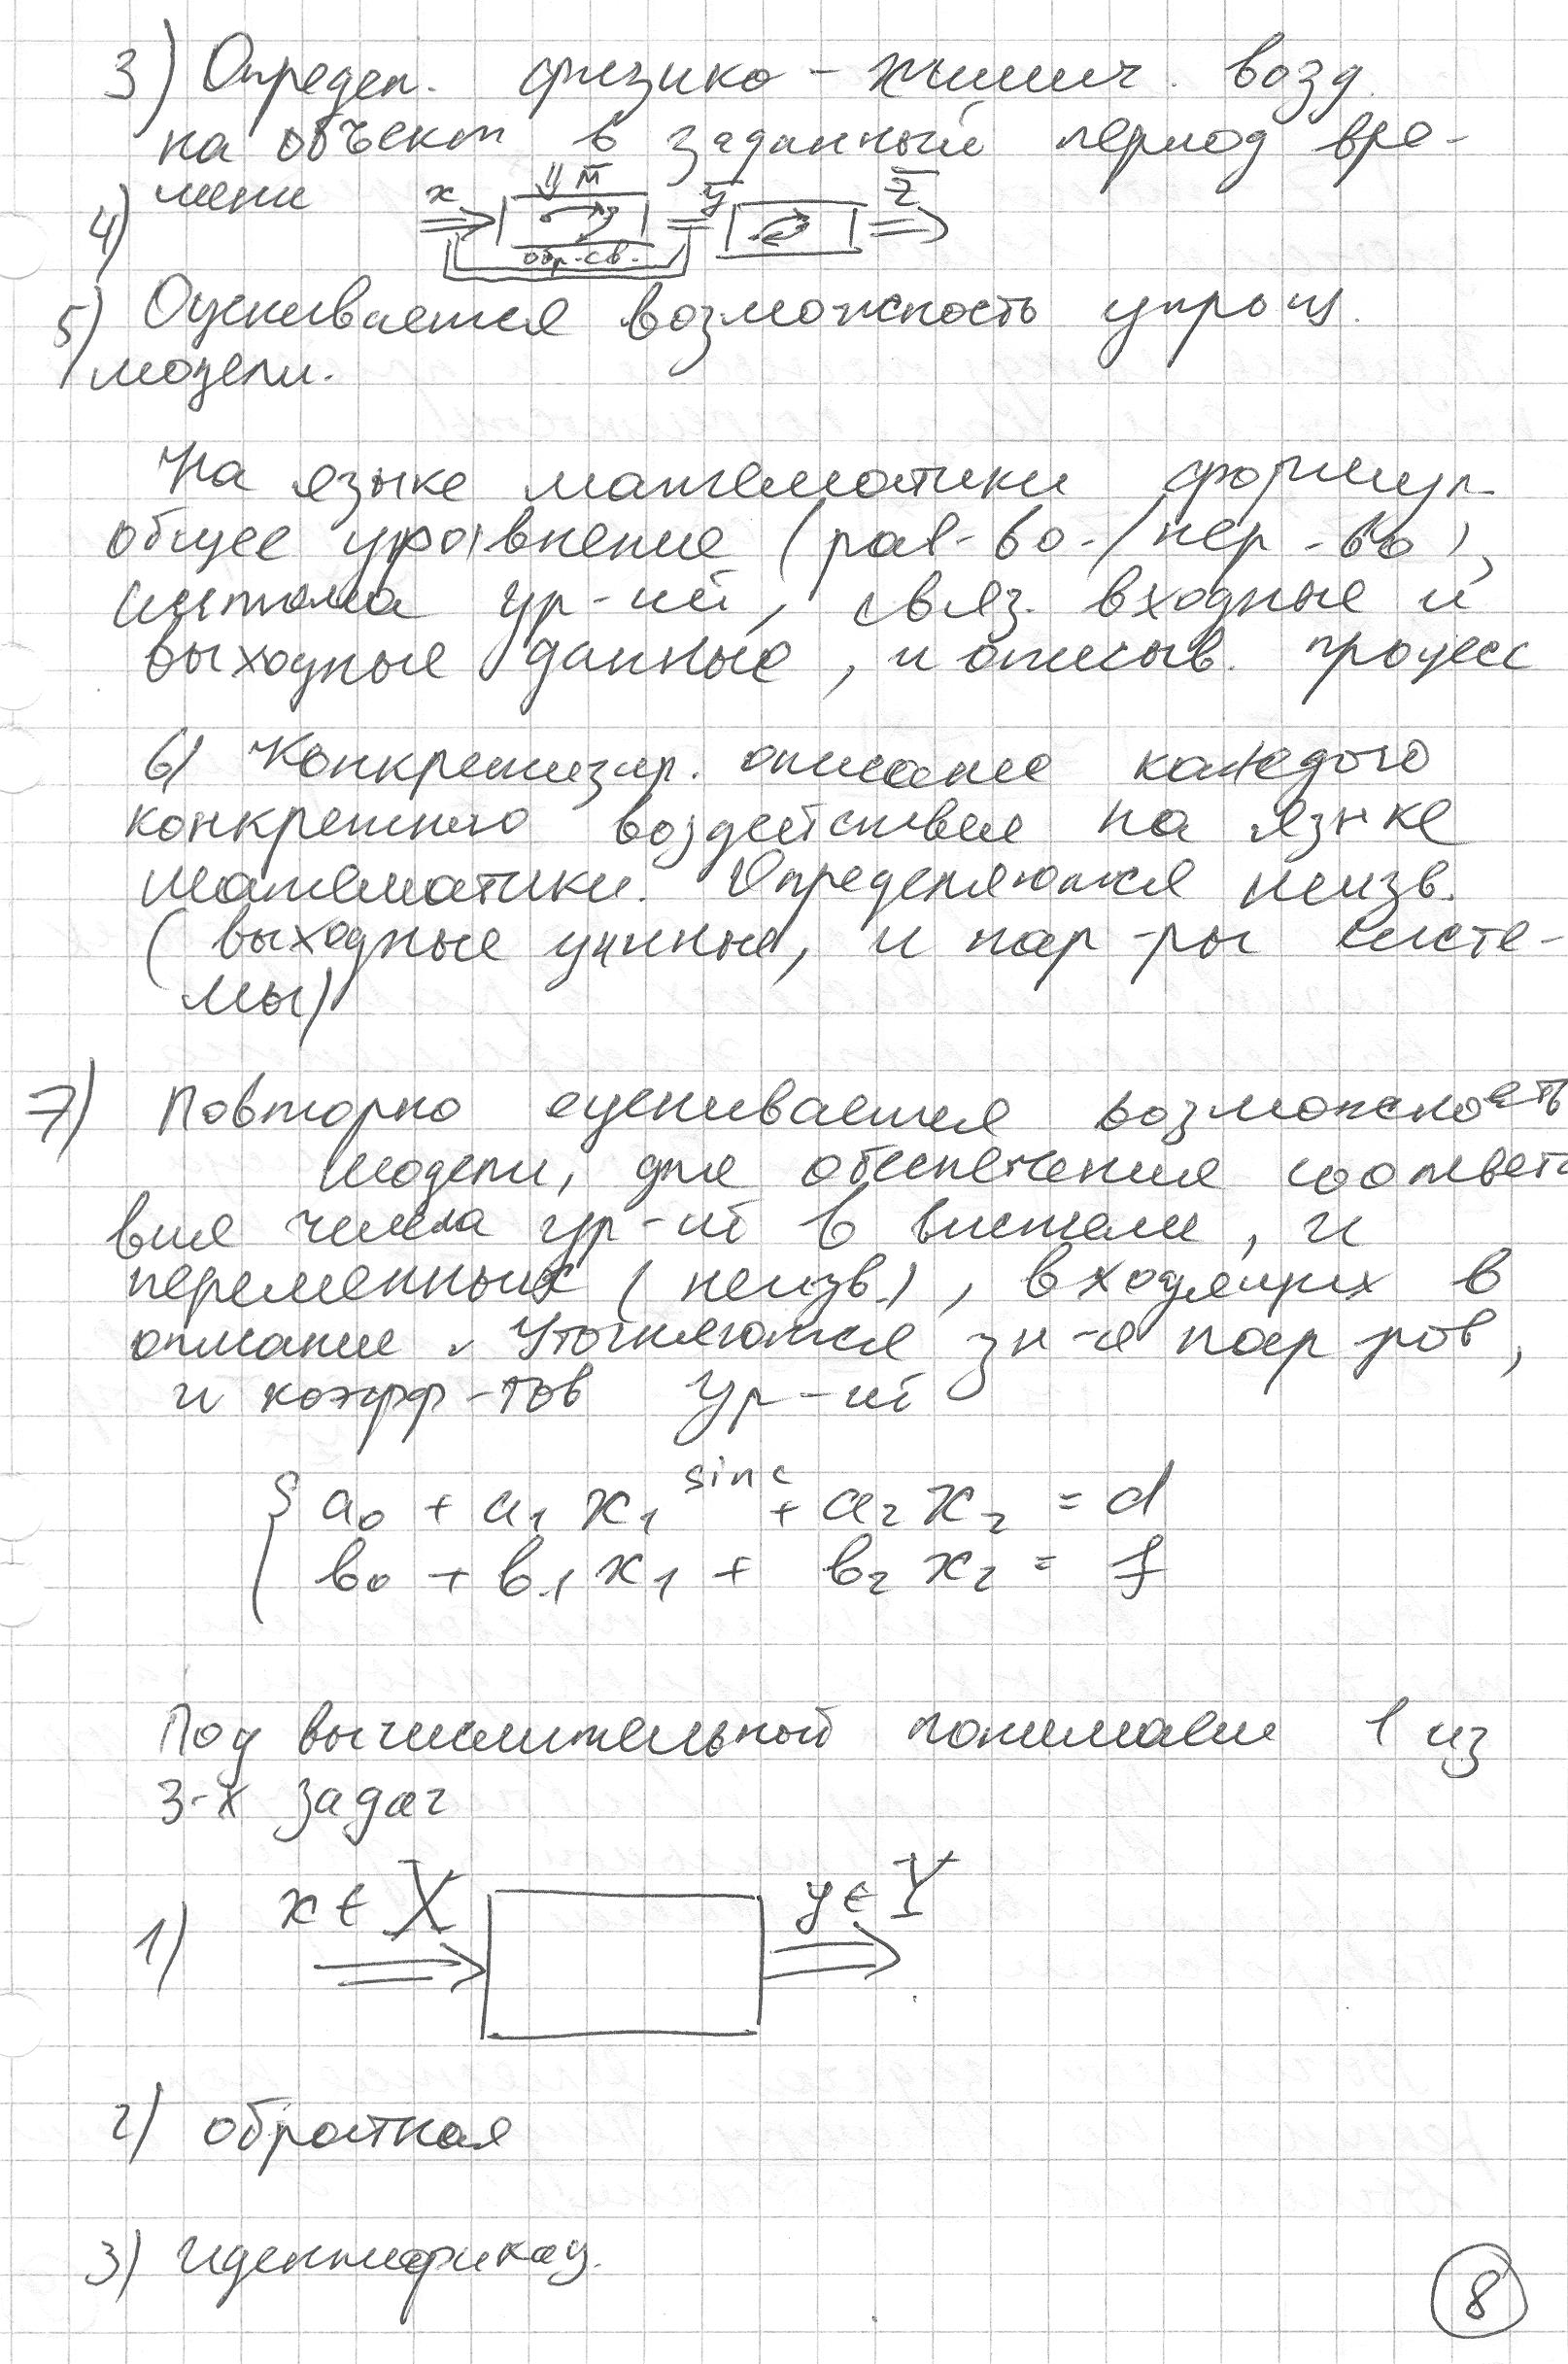 3) Определ. физико - химич. возд.
на объект в заданный период вре-
мени
x y m̅ y̅ z̅
4)
обр.св.
5) Оценивается возможность упрощ.
модели.
На языке математики формул.
общее уравнение (рав-во-/нер-во),
система ур-ий, связ. входные и
выходные данные, и описыв. процесс
6) Конкретизир. описание каждого
конкретного воздействия на языке
математики. Определяются неизв.
(выходные данные, и пар-ры систе-
мы)
7) Повторно оценивается возможность
модели, для обеспечения соответст
вия числа ур-ий в системе, и
переменных (неизв.), входящих в
описание. Уточняются зн-я пар-ров,
и коэфф-тов ур-ий
a₀ + a₁ x₁ sin c + a₂ x₂ = d
b₀ + b₁ x₁ + b₂ x₂ = f
Под вычислительной понимаем 1 из
3-х задач
1) x ∈ X y ∈ Y
2) обратная
3) идентификац.
8